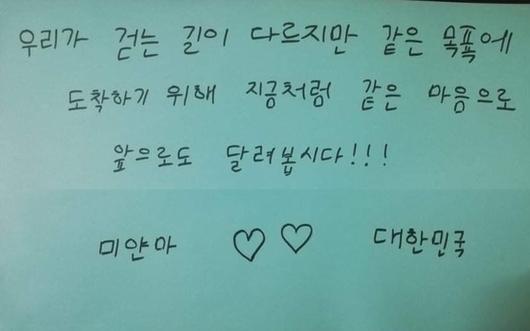 우리가 걷는 길이 다르지만 같은 목푝에
도착하기 위해 지금처럼 같은 마음으로
앞으로도 달려봅시다!!!
미얀마 ♡♡ 대한민국